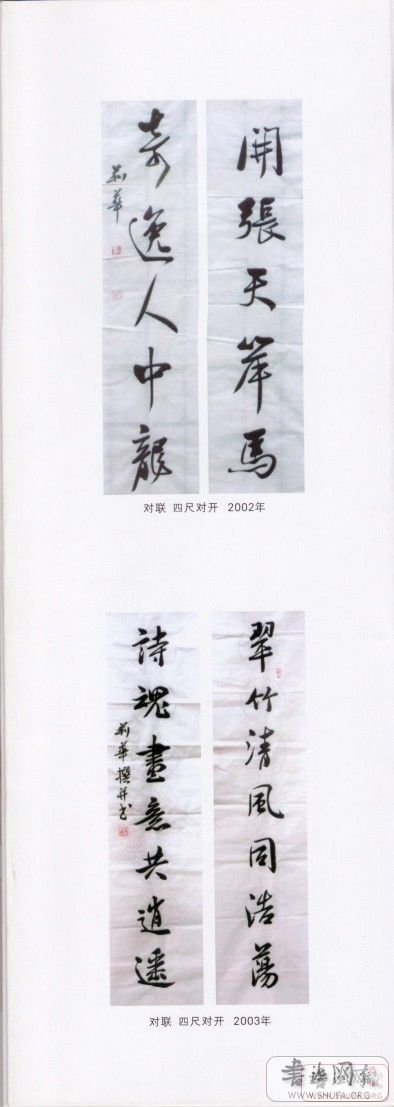 開張天岸馬
奇逸人中龍
莉華
对联 四尺对开 2002年
翠竹清風同浩蕩
詩魂畫意共逍遥
莉華撰并书
对联 四尺对开 2003年
WWW.SHUFA.ORG